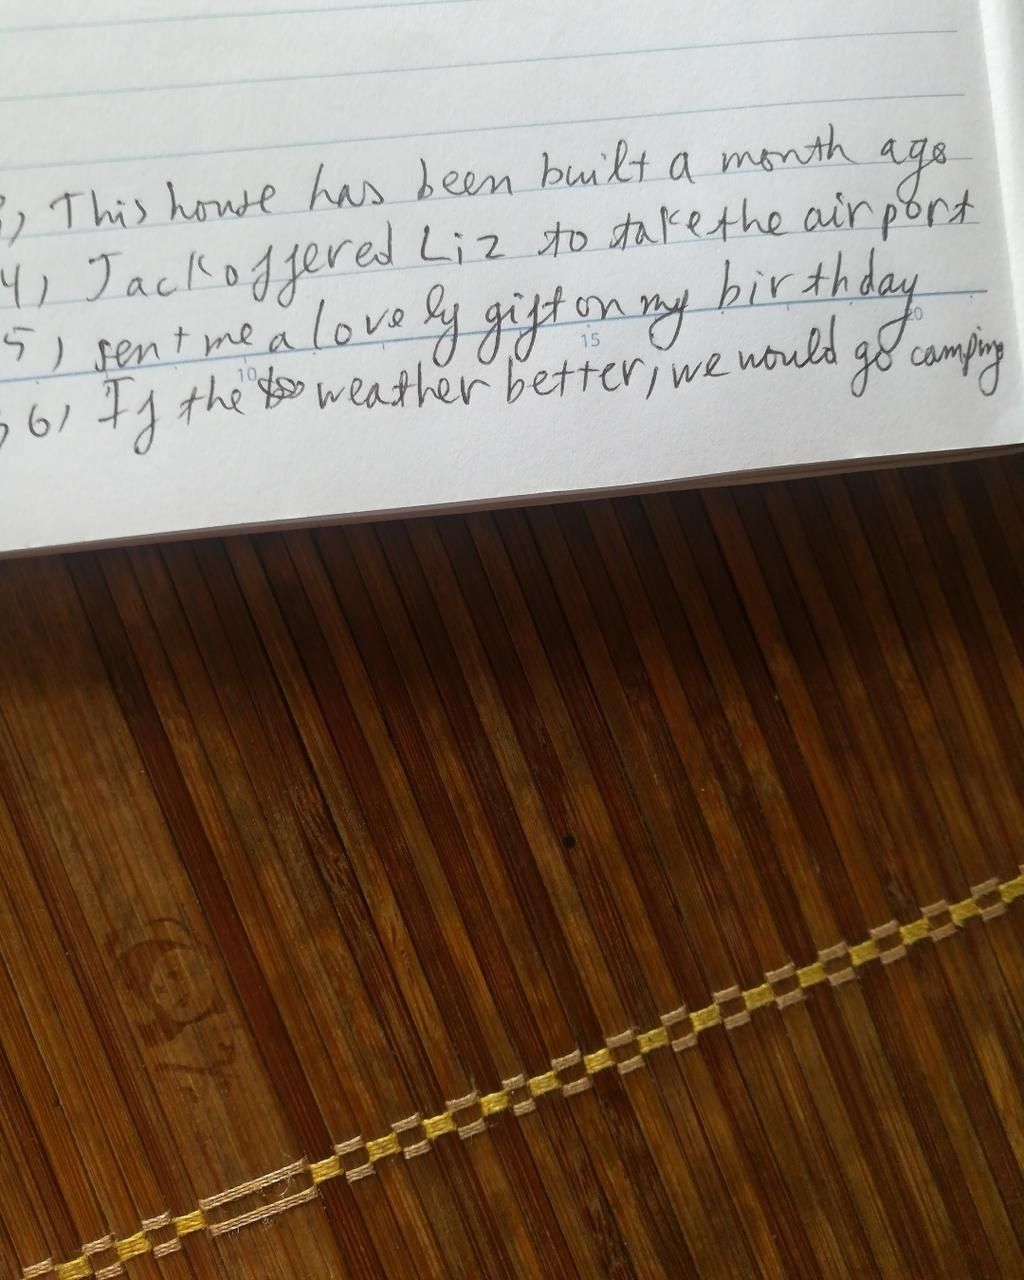 ), This house has been built a month ago
4, Jack offered Liz to take the airport
5) sent me a lovely gift on my birthday
10 15 20
6, If the weather better, we would go camping